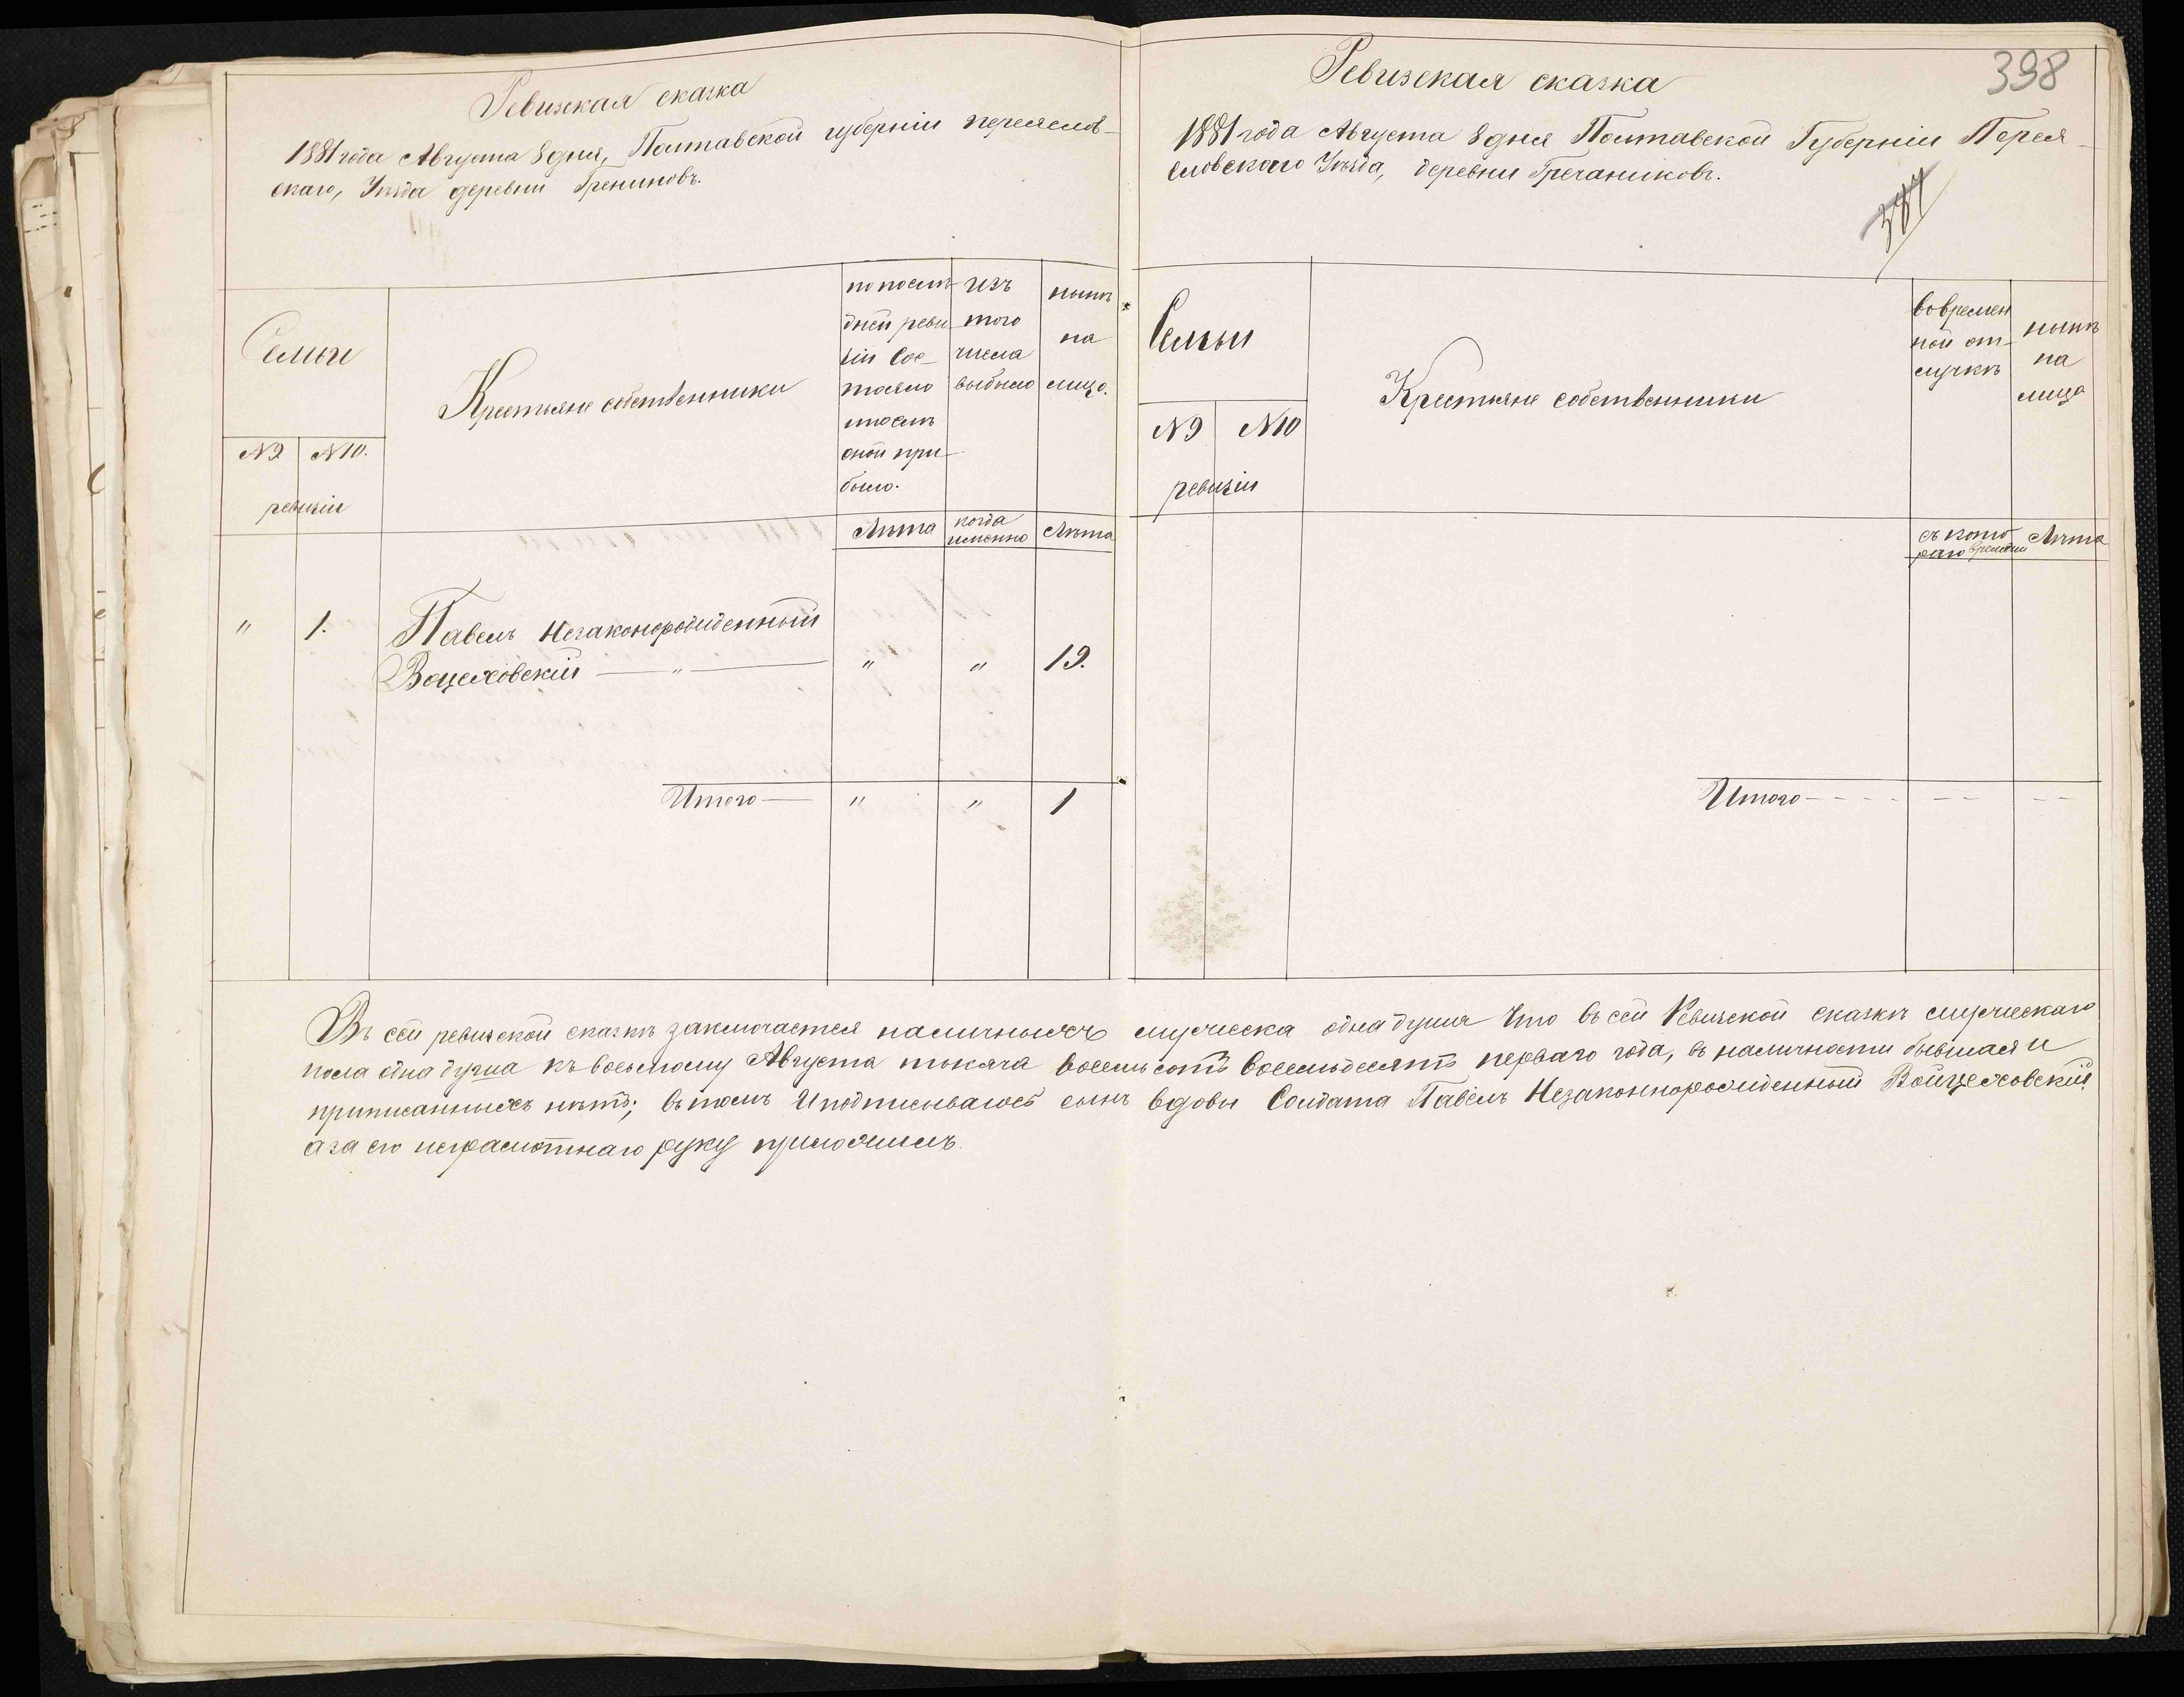 Ревизская сказка
1881 года Августа 8 дня, Полтавской губерніи переяслов-
скаго, Уѣзда деревни
Семьи
№ 9 № 10.
ревизіи
Крестьяне собственники
по послѣ-
дней реви
зіи Сос-
тояло
и послѣ
оной при-
было.
Лѣта
изъ
того
числа
выбыло
когда
именно
нынѣ
на
лицо.
Лѣта
" 1. Павелъ Незаконорожденный
Воцеховскій — " — " " 19.
Итого — " " 1
Ревизская сказка
398
1881 года Августа 8 дня Полтавской Губерніи Перея-
словскаго Уѣзда, деревни Гречаниковъ.
Семьи
№ 9 № 10
ревизіи
Крестьяне собственники
во времен
ной от-
лучкѣ
съ кото
раго времени
нынѣ
на
лицо
Лѣта
Итого - - - - - - - -
Въ сей ревизской сказкѣ заключается наличныхъ мужеска одна душа Что въ сей Ревизской сказкѣ мужческаго
пола одна душа къ восьмому Августа тысяча восемьсотъ восемьдесятъ перваго года, въ наличности бывшая и
приписанныхъ нѣтъ; въ томъ И подписываюсь сынъ вдовы Солдата Павелъ Незаконнорожденный Войцеховскій,
а за его неграмотнаго руку приложилъ